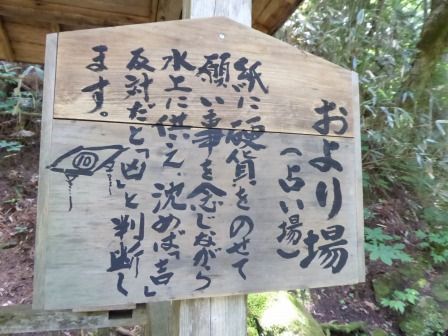 おより場
(占い場)
紙に硬貨をのせて
願い事を念じながら
水上に供え、沈めば「吉」
反対だと「凶」と判断し
ます。
10